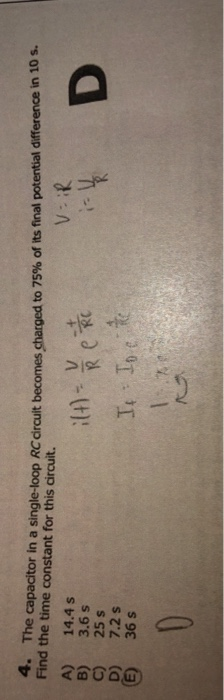 4. The capacitor in a single-loop RC circuit becomes charged to 75% of its final potential difference in 10 s.
Find the time constant for this circuit.
A) 14.4 s
B) 3.6 s
C) 25 s
D) 7.2 s
E) 36 s
i(t) = V/R e^-t/RC
V = iR
i = V/R
D
D